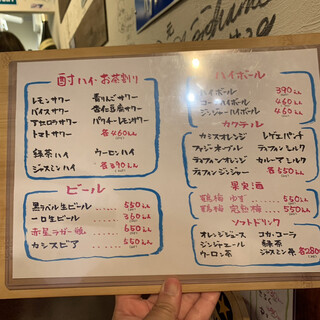 酎ハイ・お茶割り
レモンサワー 青りんごサワー
バイスサワー
アセロラサワー パクチーレモンサワー
トマトサワー 各460えん
緑茶ハイ ウーロンハイ
ジャスミンハイ 各390えん
ビール
黒ラベル生ビール 550えん
一口生ビール 360えん
赤星ラガー 650えん
カシスビア 550えん
ハイボール
ハイボール 390えん
コークハイボール 460えん
ジンジャーハイボール 460えん
カクテル
カシスオレンジ レゲエパンチ
ファジーネーブル ディタミルク
オレンジ カルーアミルク
ジンジャー 各550えん
果実酒
鶴梅 ゆず 550えん
鶴梅 完熟梅 550えん
ソフトドリンク
オレンジジュース コカ・コーラ
ジンジャエール 緑茶
ウーロン茶 ジャスミン茶 各280